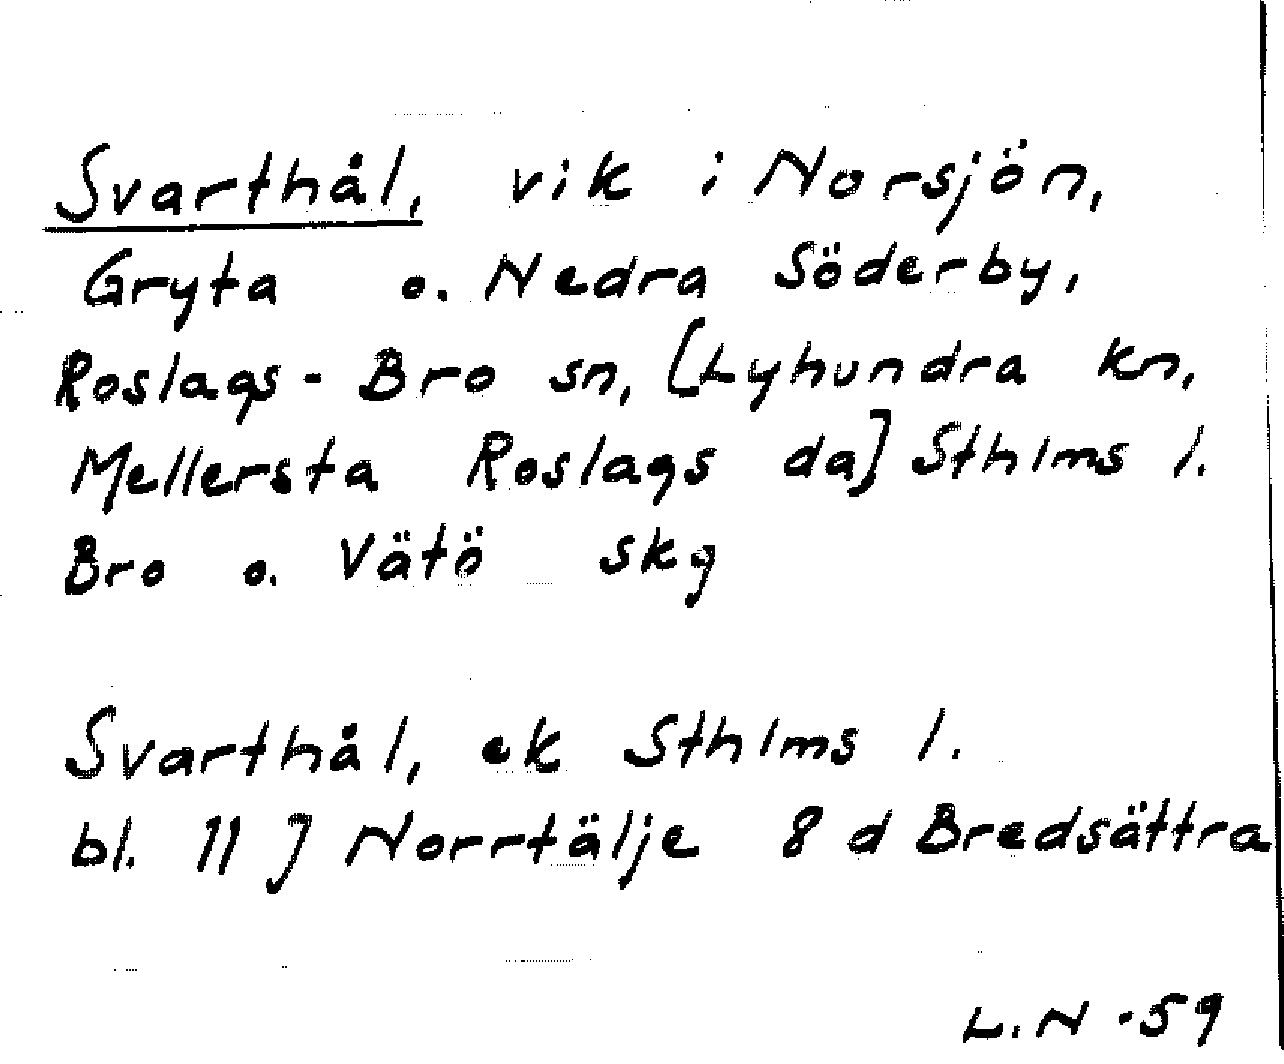 Svarthål, vik i Norsjön,
Gryta o. Nedra Söderby,
Roslags-Bro sn, [Lyhundra kn,
Mellersta Roslags da] Sthlms l.
Bro o. Vätö skg
Svarthål, ek Sthlms l.
bl. 11 J Norrtälje 8 d Bredsättra
L.N -59